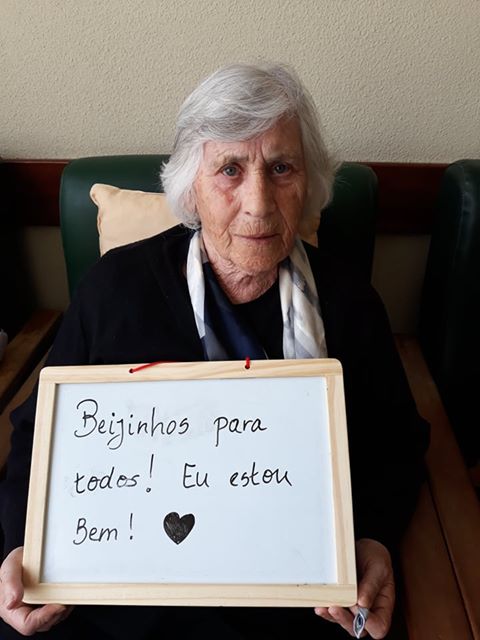 Beijinhos para
todos! Eu estou
Bem! ♥